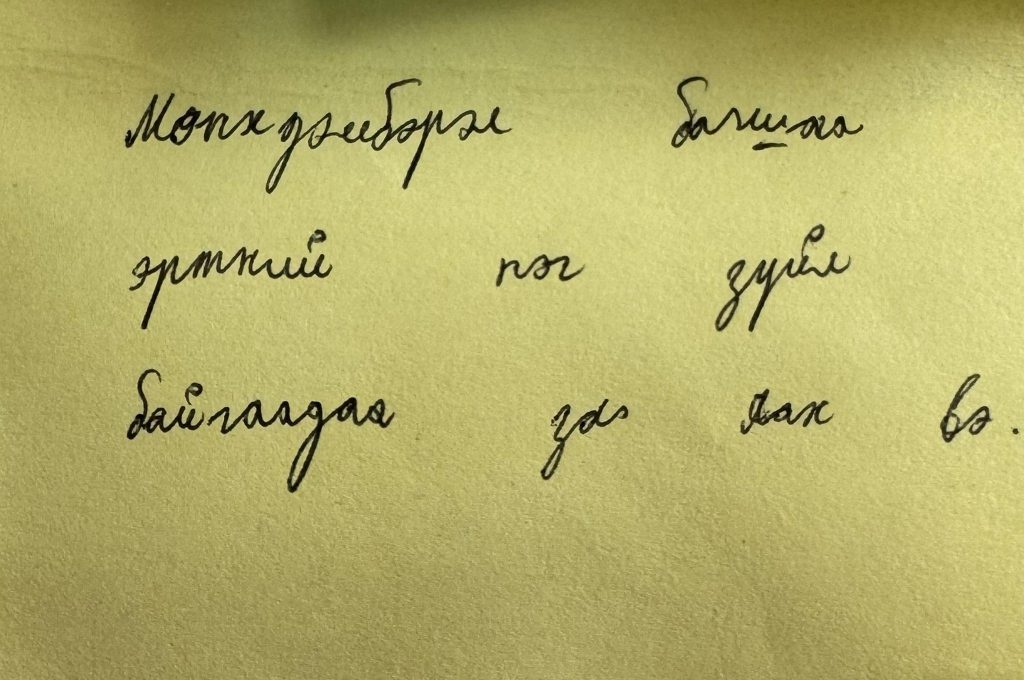 Мөнхдэмбэрэл багшаа
эртний нэг зүйл
байгаадаа за яах вэ.